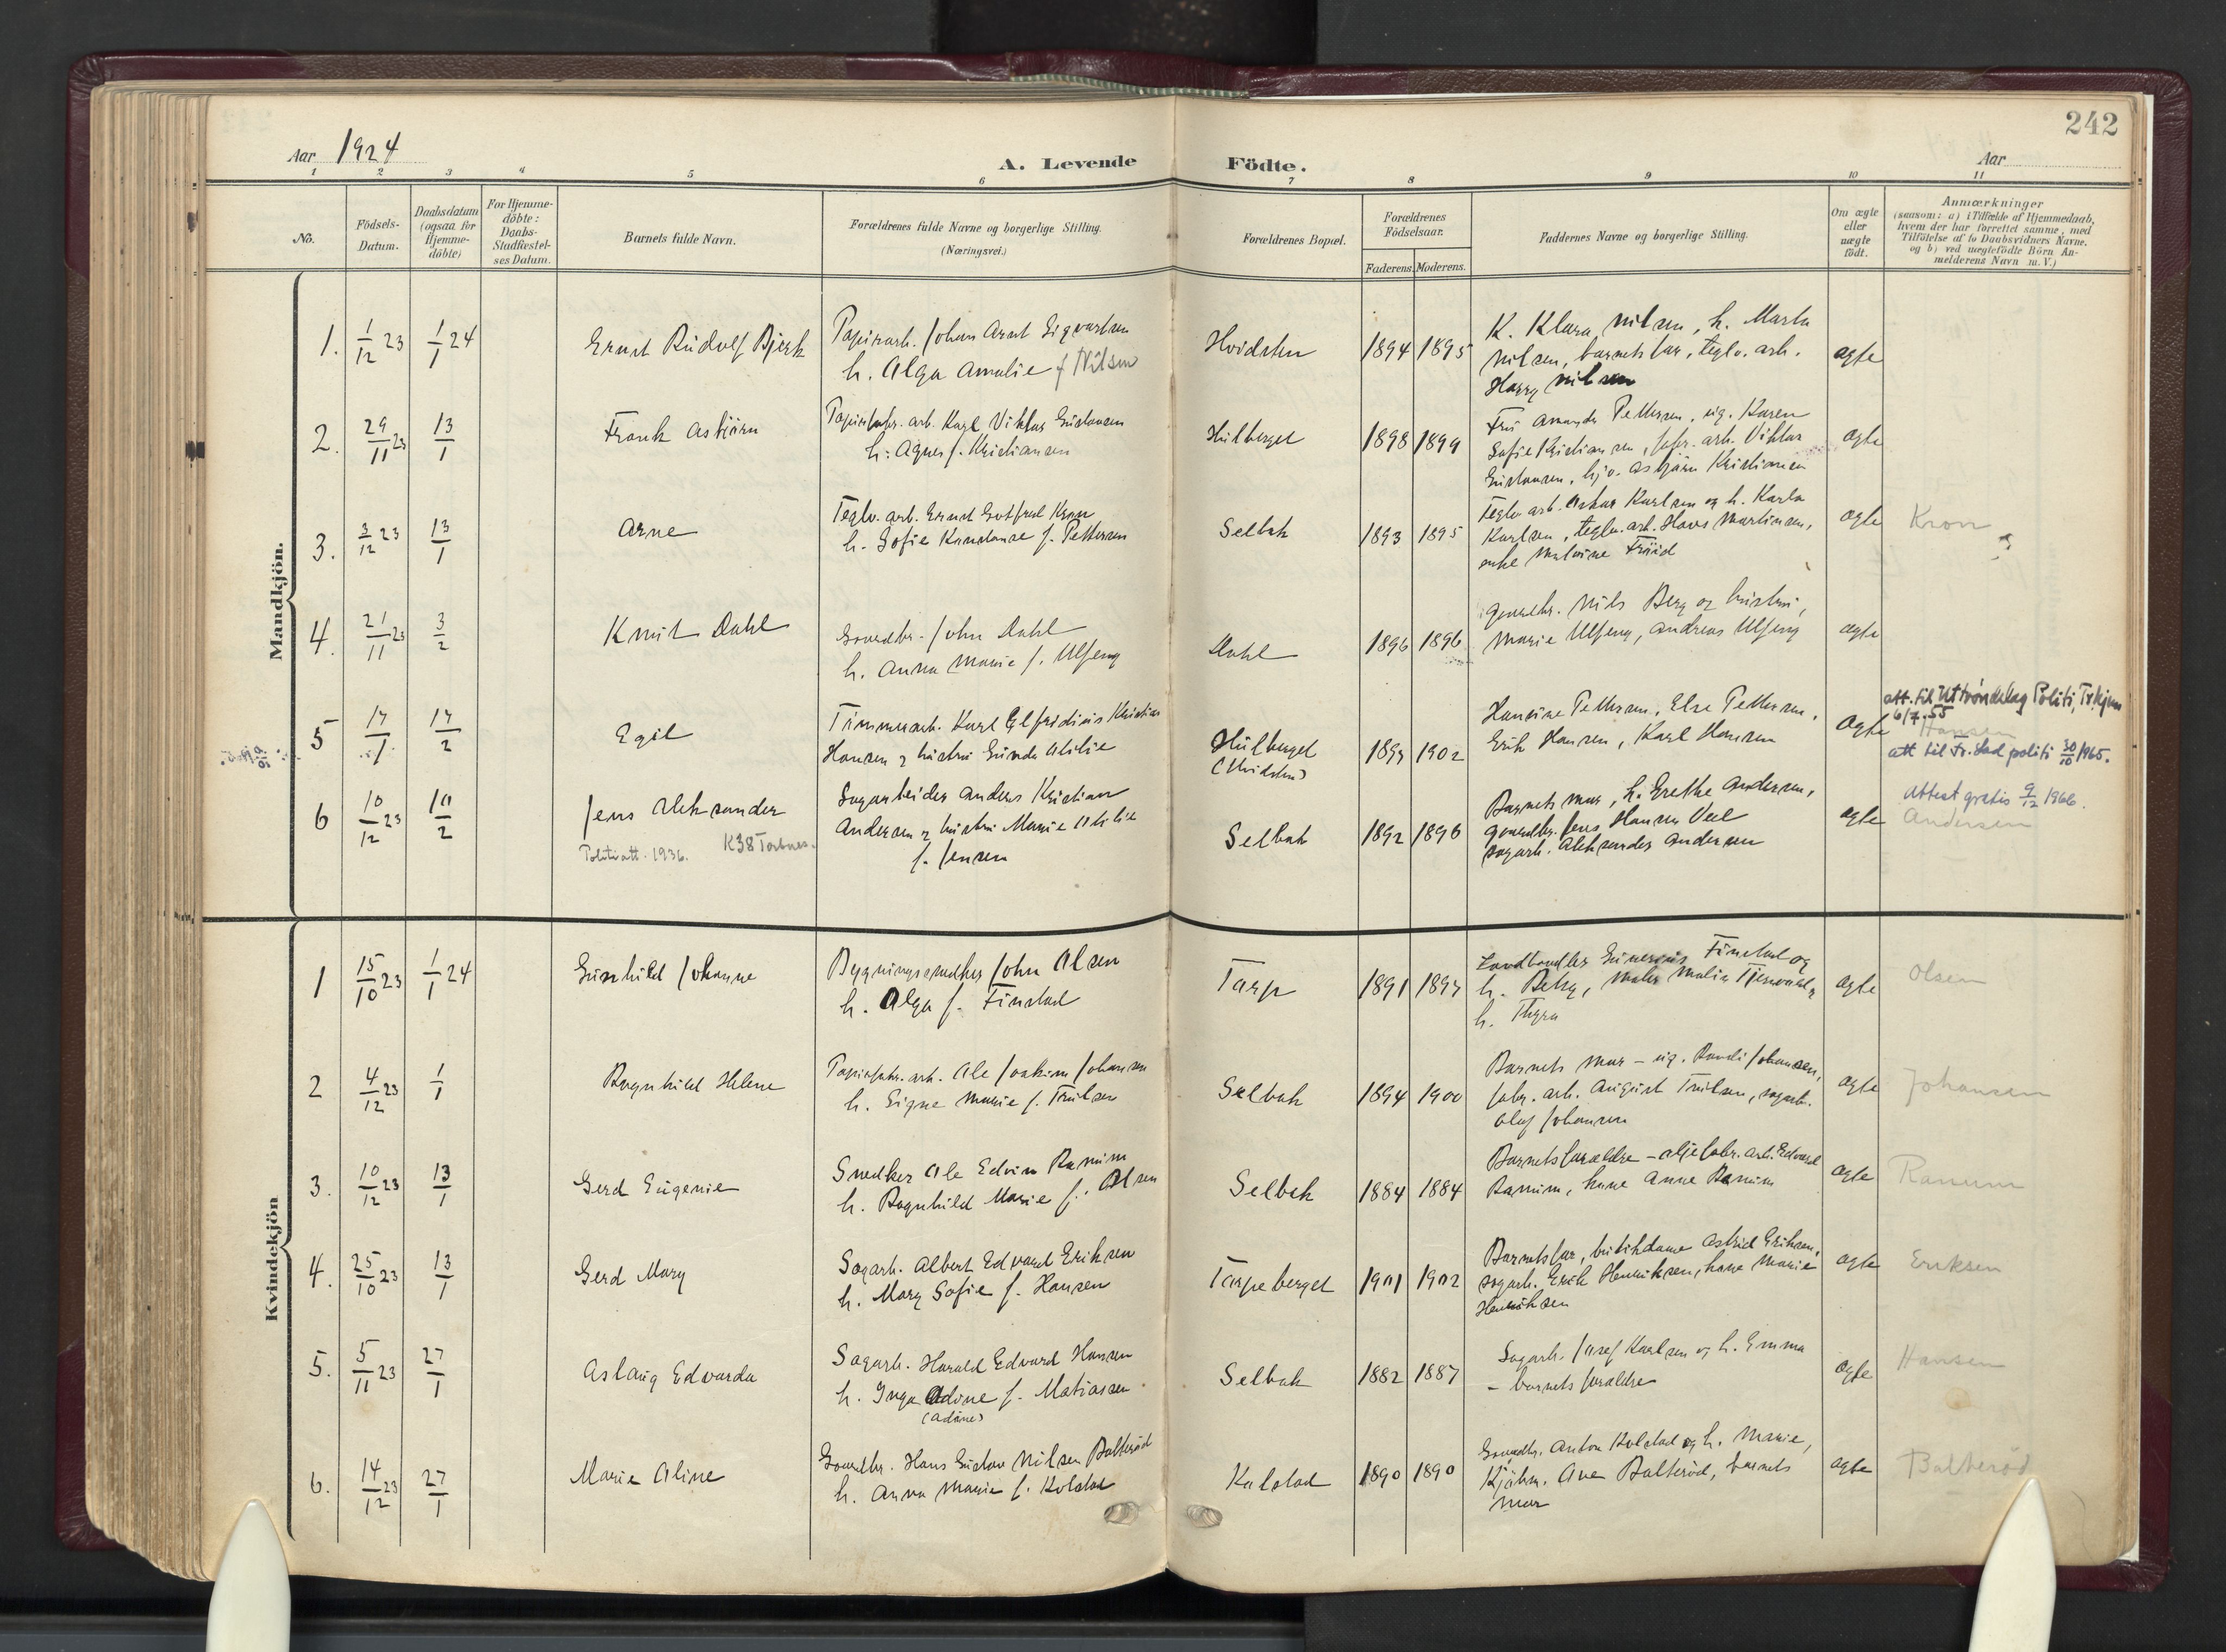 242
Aar 1924
A. Levende Födte.
Aar
1 2 3 4 5 6 7 8 9 10 11
No.
Födsels-
Datum.
Daabsdatum
(ogsaa for
Hjemme-
döbte)
For Hjemme-
döbte:
Daabs-
Stadfæstel-
ses Datum.
Barnets fulde Navn.
Forældrenes fulde Navne og borgerlige Stilling.
(Næringsvei.)
Forældrenes Bopæl.
Forældrenes
Födselsaar.
Faderens. Moderens.
Faddernes Navne og borgerlige Stilling.
Om ægte
eller
uægte
födt.
Anmærkninger
(saasom: a) i Tilfælde af Hjemmedaab,
hvem der har forrettet samme, med
Tilföielse af to Daabsvidners Navne,
og b) ved uægtefödte Börn An-
melderens Navn m. V.)
Mandkjön.
1. 1/12 23 1/1 24
Ernst Rudolf Bjerk
Papirarb. Johan Arnt Sigvartsen
h. Olga Amalie f. Nilsen
Hvidsten
1894 1895
K. Klara Nilsen, h. Marta
Nilsen, barnets far, teglv. arb.
Harry Nilsen
ægte
2. 29/11 23 13/1
Frank Asbjörn
Papirfabr. arb. Karl Viktor Gustavsen
h: Agnes f. Kristiansen
Hulberget
1898 1899
Fru Amanda Pettersen, ug. Karen
Sofie Kristiansen, fabr. arb. Viktor
Gustavsen, Asbjörn Kristiansen
ægte
3. 3/12 23 13/1
Arne
Teglv. arb. Ernst Gotfred Kron
h. Sofie Konstanse f. Pettersen
Selbak
1893 1895
Teglv. arb. Oskar Karlsen og h. Karla
Karlsen, teglv. arb. Hans Martinsen,
enke Malvine
ægte
Kron
4. 21/11 23 3/2
Knut Dahl
Gaardbr. John Dahl
h. Anna Marie f. Ulfeng
Dahl
1896 1896
Gaardbr. Nils Berg og hustru,
Marie Ulfeng, Andreas Ulfeng
ægte
5 17/1 17/2
Egil
Timmerarb. Karl Elfridius Kristian
Hansen og hustru Gunda Otilie
Hulberget
(Hvidsten)
1899 1902
Hansine Pettersen, Else Pettersen,
Erik Hansen, Karl Hansen
ægte
att. til Uttröndelag Politi, Tr.hjem
6/7.55
Hansen
att til Fr.stad politi 30/10 1965.
6 10/12 23 10/2
Jens Aleksander
Politiatt. 1936. K38 Torsnes.
Sagarbeider Anders Kristian
Andersen og hustru Marie Otilie
f. Jensen
Selbak
1892 1896
Barnets mor, h. Grethe Andersen,
gaardbr. Jens Hansen Veel
sagarb. Aleksander Andersen
ægte
Attest gratis 9/12 1966.
Andersen
Kvindekjön
1 15/10 23 1/1 24
Gunhild Johanne
Bygningssnedker John Olsen
h. Olga f. Finstad
Tarp
1891 1897
Landhandler Finstad og
h. Betsy, maler
h. Thyra
ægte
Olsen
2 4/12 23 1/1
Ragnhild Helene
Papirfabr. arb. Ole Joakim Johansen
h. Signe Marie f. Trulsen
Selbak
1894 1900
Barnets mor – ug. Randi Johansen,
fabr. arb. August Trulsen, sagarb.
Olaf Johansen
ægte
Johansen
3. 10/12 23 13/1
Gerd Eugenie
Snedker Ole Edvin Ranum
h. Ragnhild Marie f. Olsen
Selbak
1884 1884
Barnets forældre – oljefabr. arb. Edvard
Ranum, kone Anne Ranum
ægte
Ranum
4. 25/10 23 13/1
Gerd Mary
Sagarb. Albert Edvard Eriksen
h. Mary Sofie f. Hansen
Tarpeberget
1901 1902
Barnets far, butikdame Astrid Eriksen,
sagarb. Erik Henriksen, kone Marie
Henriksen
ægte
Eriksen
5. 5/11 23 27/1
Aslaug Edvarda
Sagarb. Harald Edvard Hansen
h. Inga Odine f. Matiassen
(Adine)
Selbak
1882 1887
Sagarb. Josef Karlsen og h. Emma
– barnets forældre
ægte
Hansen
6. 14/12 23 27/1
Marie Oline
Gaardbr. Hans Gustav Nilsen Balteröd
h. Anna Marie f. Kolstad
Kalstad
1890 1890
Gaardbr. Anton Kolstad og h. Marie,
Ove Balteröd, barnets
mor
ægte
Balteröd